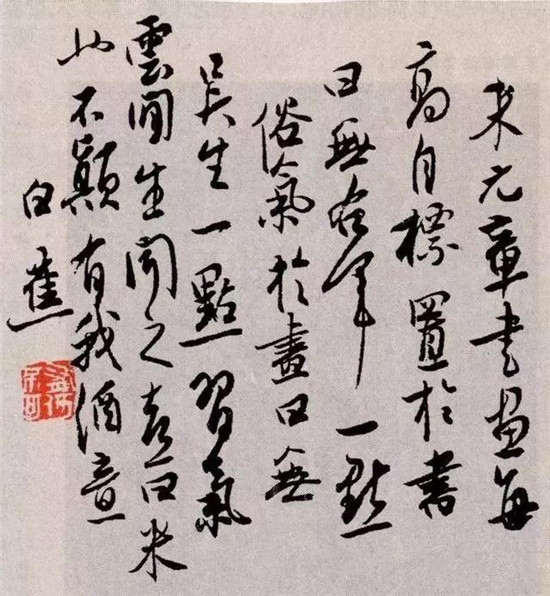 米元章書畫每
高自標置於書
曰無右軍一點
俗氣於畫曰無
吳生一點習氣
雲間生聞之喜曰米
也不顛有我酒意
白蕉